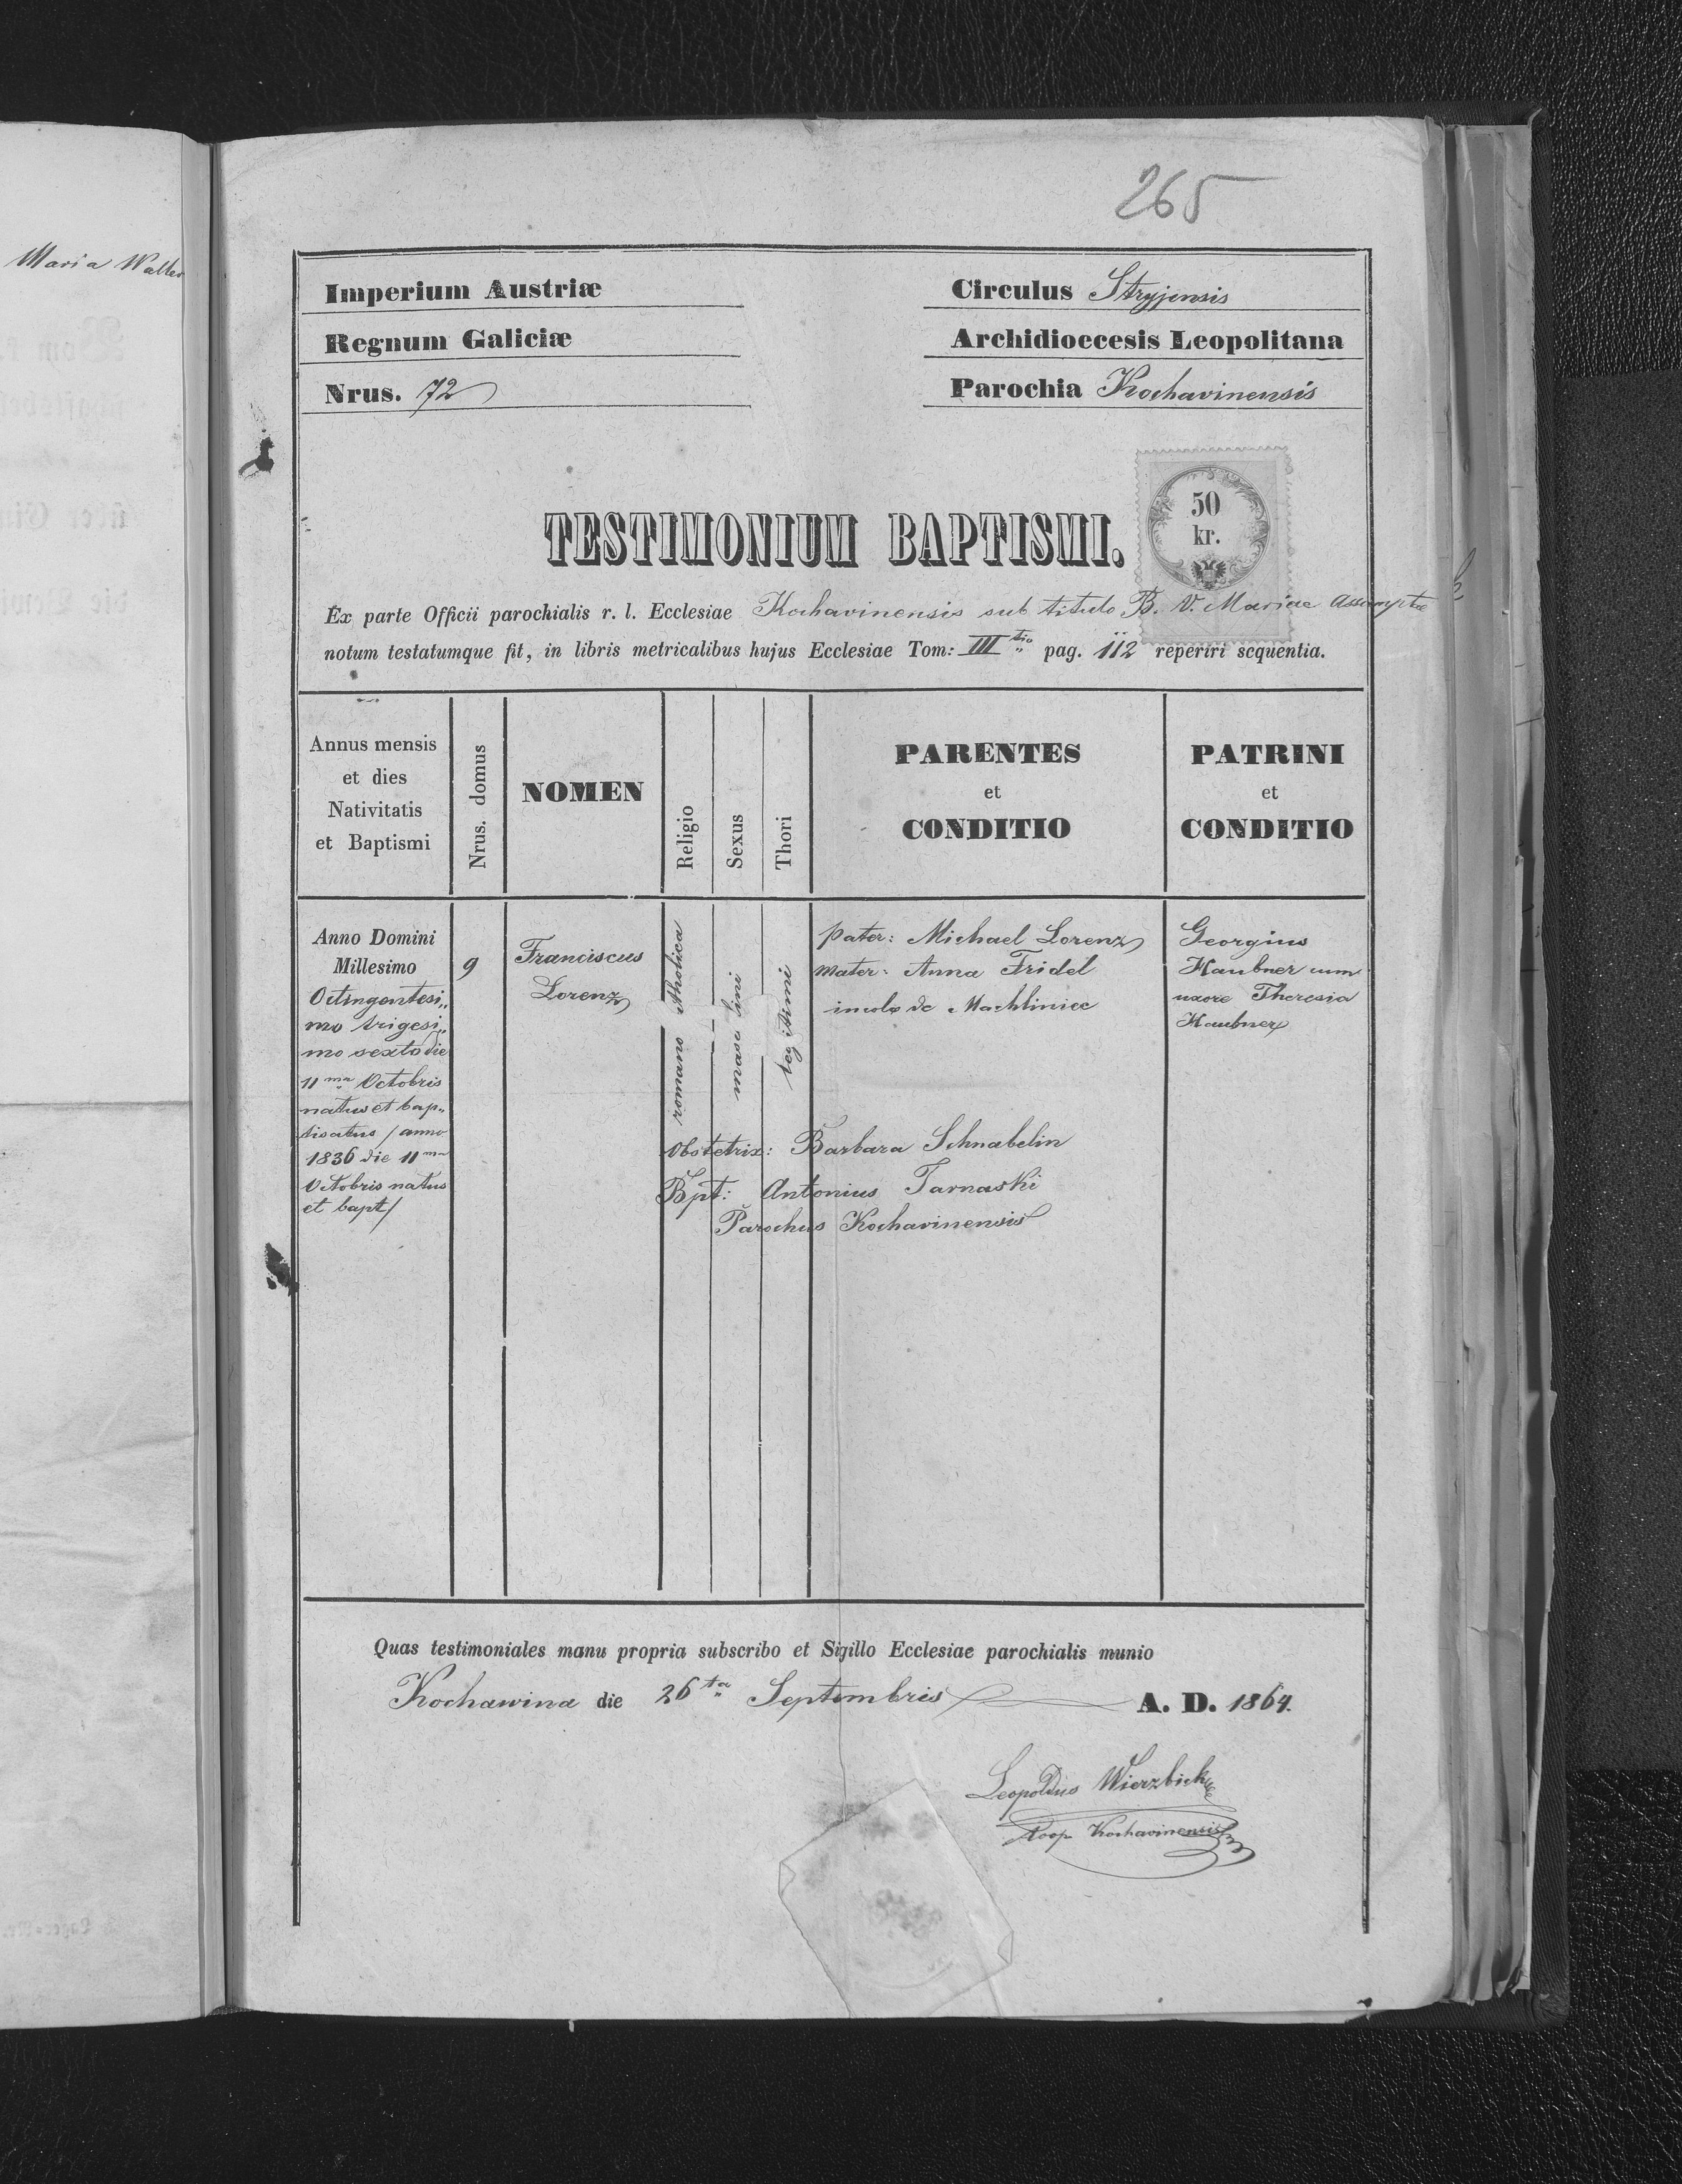 265
Maria Walter
Imperium Austriæ
Circulus Stryjensis
Regnum Galiciæ
Archidioecesis Leopolitana
Nrus. 72
Parochia Kochavinensis
50
kr.
TESTIMONIUM BAPTISMI.
Ex parte Officii parochialis r. l. Ecclesiae Kochavinensis sub titulo B. V. Mariae Assumptae
notum testatumque fit, in libris metricalibus hujus Ecclesiae Tom: III tio pag. 112 reperiri sequentia.
Annus mensis
et dies
Nativitatis
et Baptismi
Nrus. domus
NOMEN
Religio
Sexus
Thori
PARENTES
et
CONDITIO
PATRINI
et
CONDITIO
Anno Domini
Millesimo
Octingentesi„
mo trigesi„
mo sexto die
11 ma Octobris
natus et bap„
tisatus / anno
1836 die 11 ma
Octobris natus
et bapt/
9
Franciscus
Lorenz
romano catholica
masculini
legitimi
pater: Michael Lorenz
mater: Anna Fridel
incolæ de Machliniec
Georgius
Haubner cum
uxore Theresia
Haubner
Obstetrix: Barbara Schnabelin
Bpt: Antonius Tarnaski
Parochus Kochavinensis
Quas testimoniales manu propria subscribo et Sigillo Ecclesiae parochialis munio
Kochawina die 26 ta Septembris A. D. 1864.
Leopoldus Wierzbicki
Coop Kochavinensis